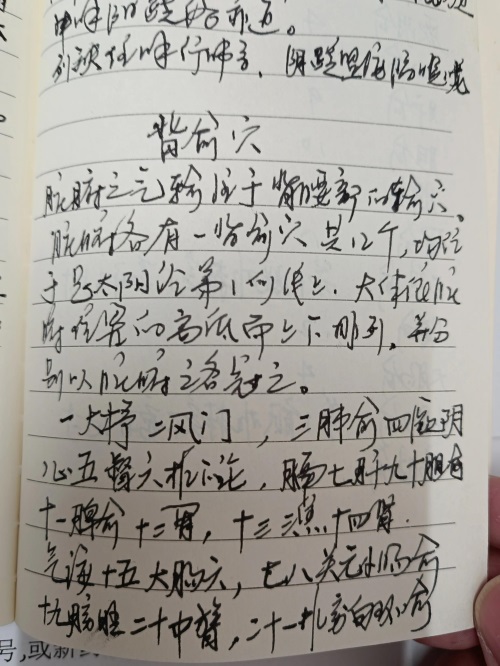 申脉阳跷络
列缺任脉行肺系，阴跷照海膈喉咙
背俞穴
脏腑之气输注于背腰部的输穴。
脏腑各有一背俞穴共12个，均位
于足太阳经第1侧线上，大体依脏
腑位置的高低而上下排列，并分
别以脏腑之名冠之。
一大杼二风门，三肺俞四厥阴
心五督六扒讨论，膈七肝九十胆俞
十一脾俞十二胃，十三三焦十四肾.
气海十五大肠六，七八关元小肠俞
十九膀胱二十中膂，二十一扒白环俞
号,或新